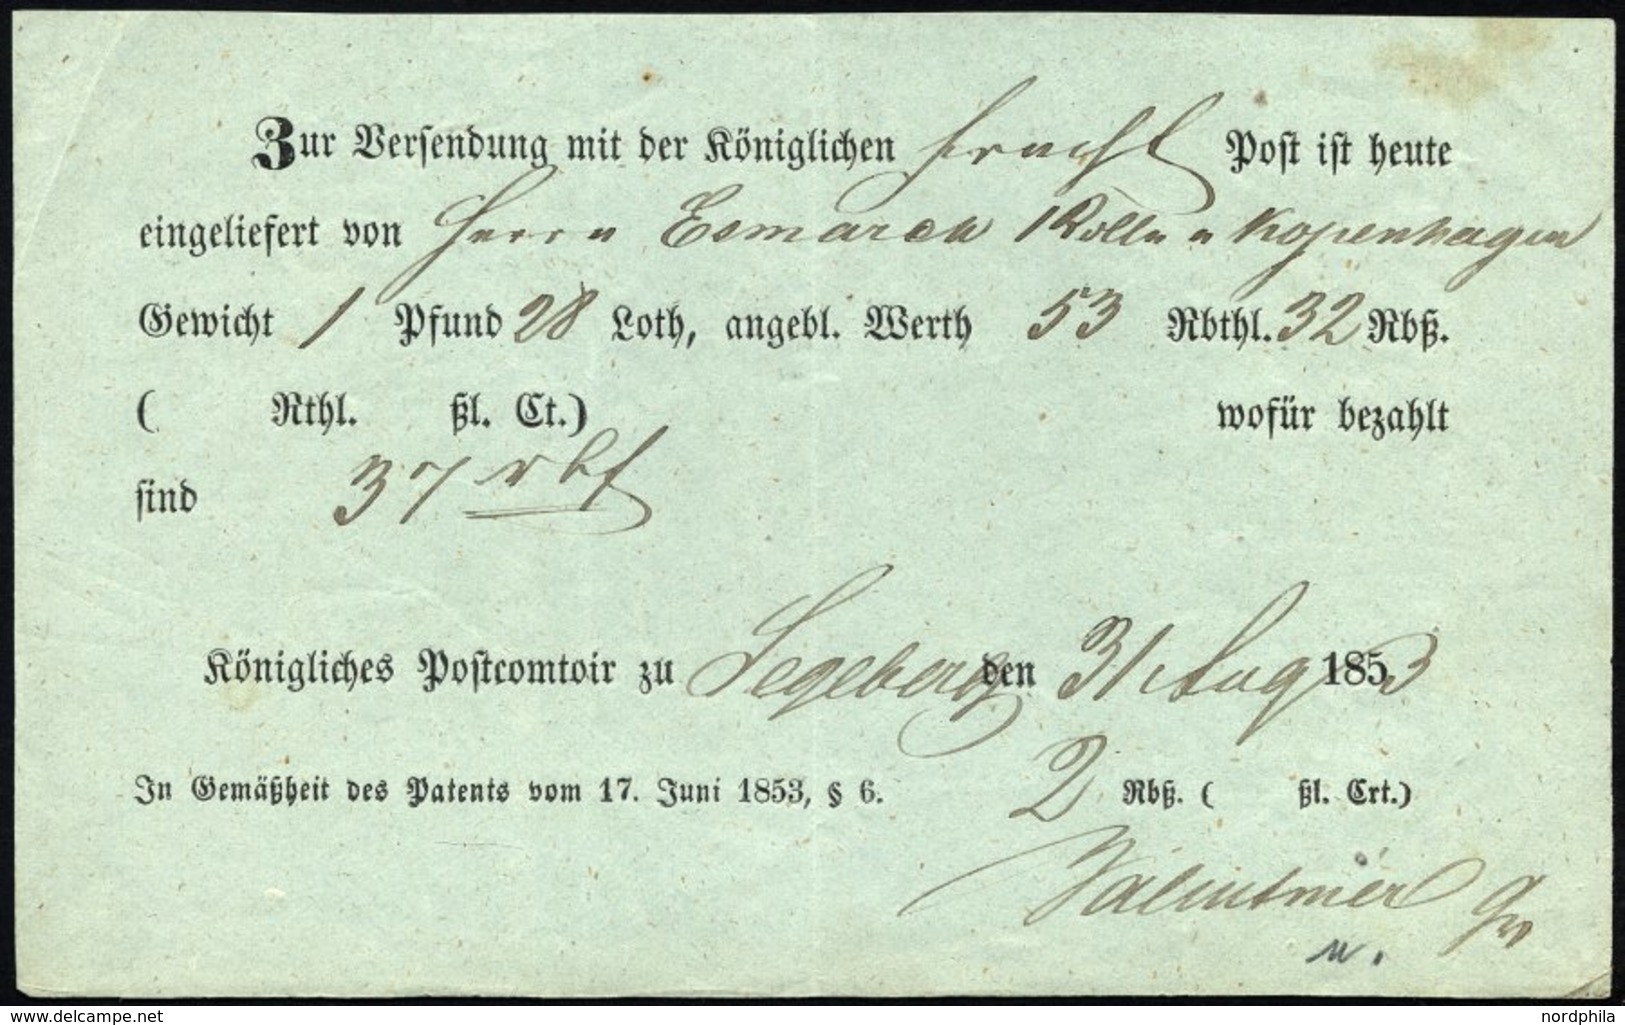 Zur Versendung mit der Königlichen Fracht Post ist heute
eingeliefert von Herrn Esmarch 1 Rolle n Kopenhagen
Gewicht 1 Pfund 28 Loth, angebl. Werth 53 Rbthl. 32 Rbß.
( Rthl. ßl. Ct.) wofür bezahlt
sind 37 rbß
Königliches Postcomtoir zu Segeberg den 31 Aug 1853
In Gemäßheit des Patents vom 17. Juni 1853, § 6. 2 Rbß. ( ßl. Crt.)
www.delcampe.net
nordphila